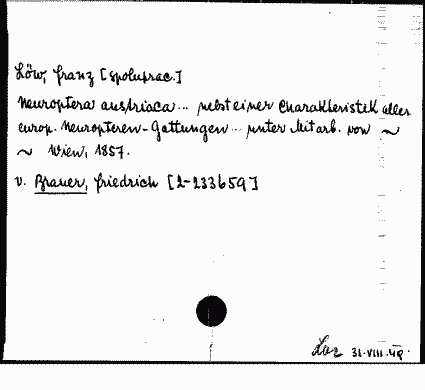 Löw, Franz [spoluprac.]
Neuroptera austriaca... nebst einer Charakteristik aller
europ. Neuropteren-Gattungen... unter Mitarb. von ~
~ Wien, 1857.
v. Brauer, Friedrich [2-233659]
31.VIII.49.